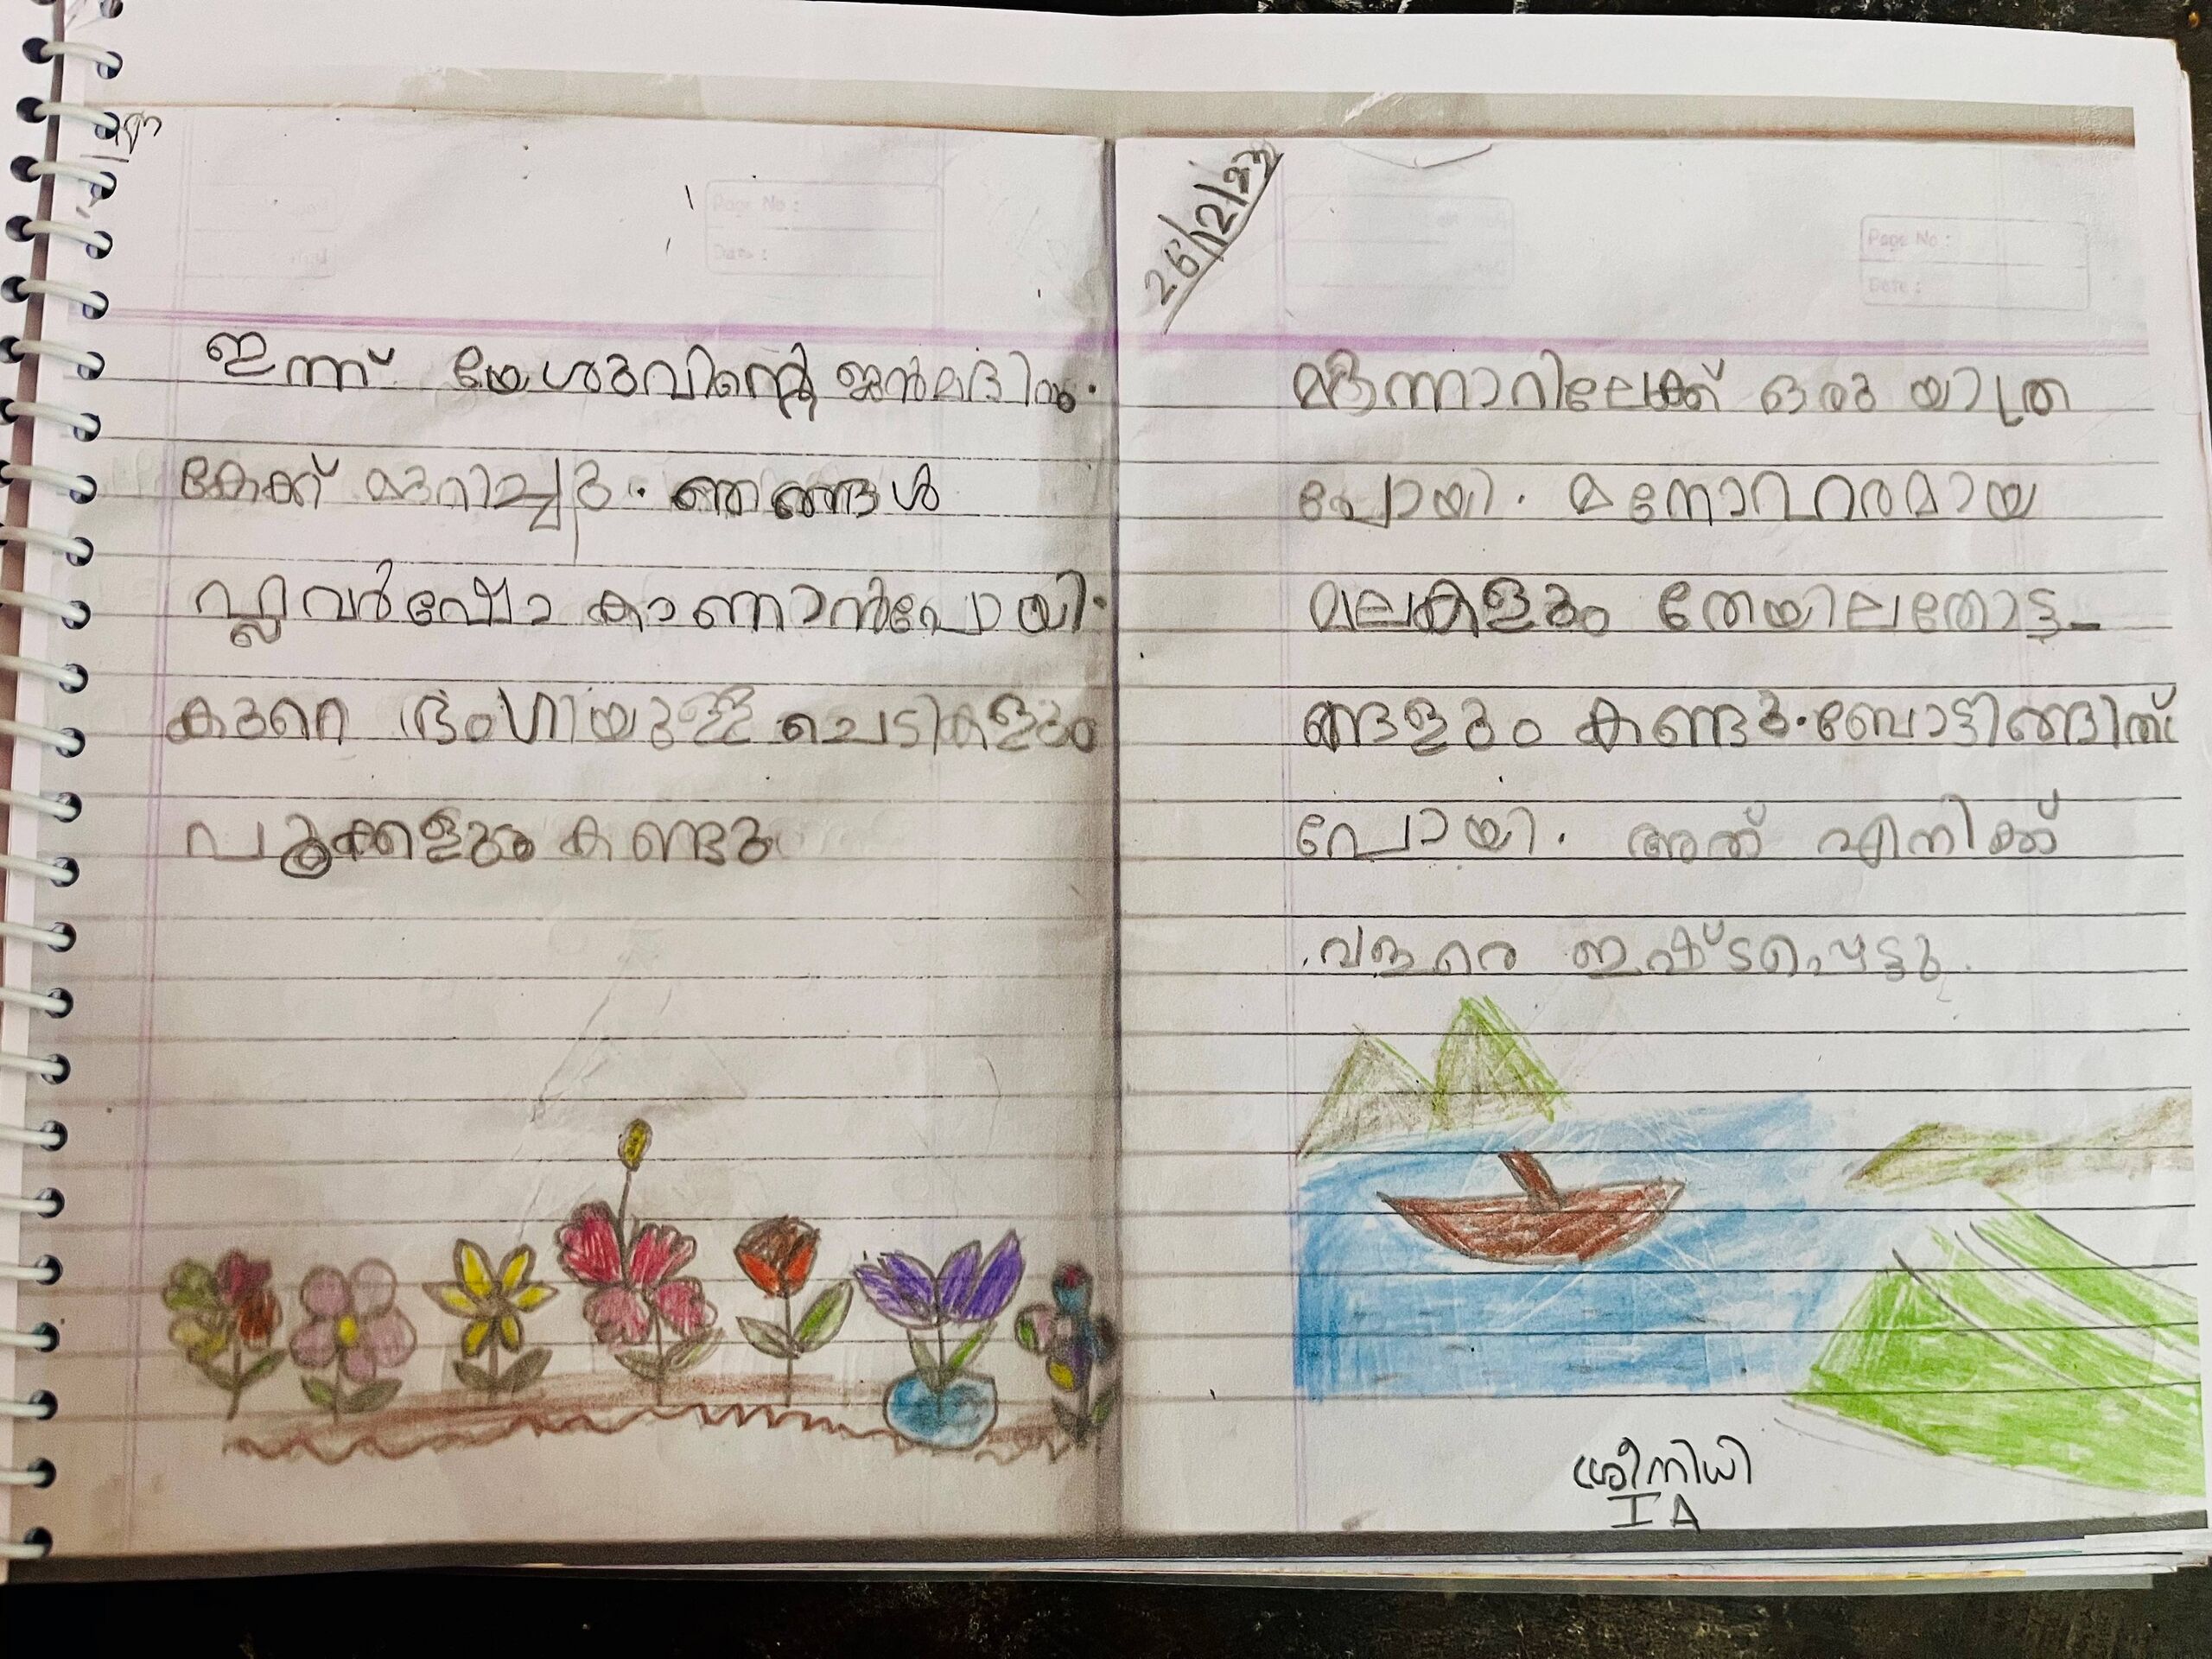 ഇന്ന് യേശുവിന്റെ ജൻമദിനം.
കേക്ക് മുറിച്ചു. ഞങ്ങൾ
ഫ്ലവർഷോ കാണാൻപോയി.
കുറെ ഭംഗിയുള്ള ചെടികളും
പൂക്കളും കണ്ടു
Page No :
Date :
26/12/23
Page No :
Date :
മൂന്നാറിലേക്ക് ഒരു യാത്ര
പോയി. മനോഹരമായ
മലകളും തേയിലതോട്ട-
ങ്ങളും കണ്ടു. ബോട്ടിങ്ങിന്
പോയി. അത് എനിക്ക്
വളരെ ഇഷ്ടപ്പെട്ടു.
ശ്രീനിധി
I A